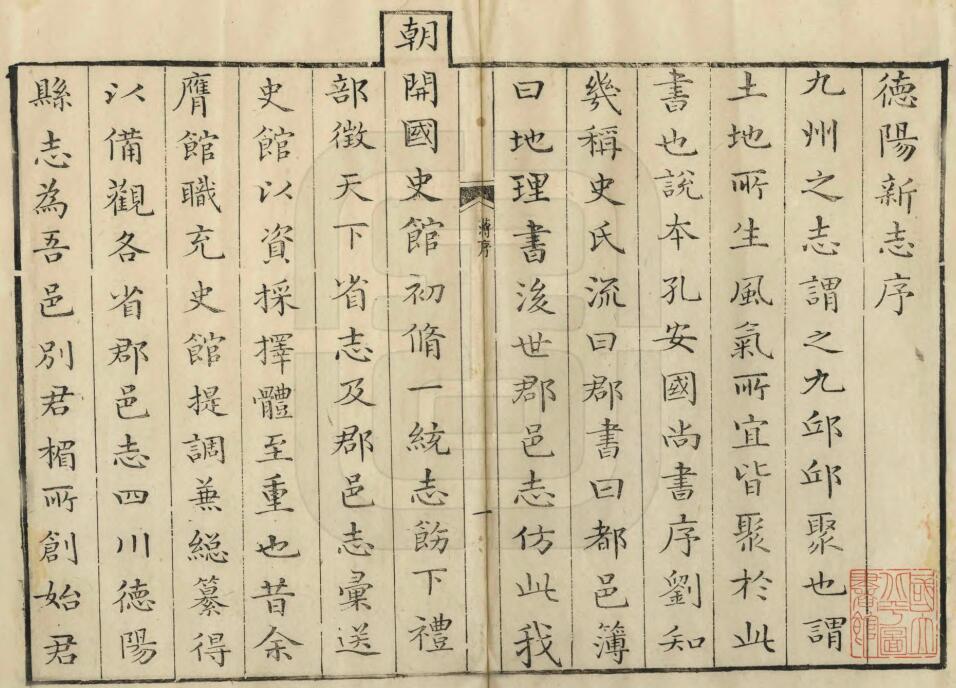 德陽新志序
九州之志謂之九邱邱聚也謂
土地所生風氣所宜皆聚於此
書也說本孔安國尚書序劉知
幾稱史氏流曰郡書曰都邑簿
曰地理書後世郡邑志仿此我
蔣序
一
朝
開國史館初脩一統志飭下禮
部徵天下省志及郡邑志彙送
史館以資採擇體至重也昔余
膺館職充史館提調兼總纂得
以備觀各省郡邑志四川德陽
縣志為吾邑別君楣所創始君